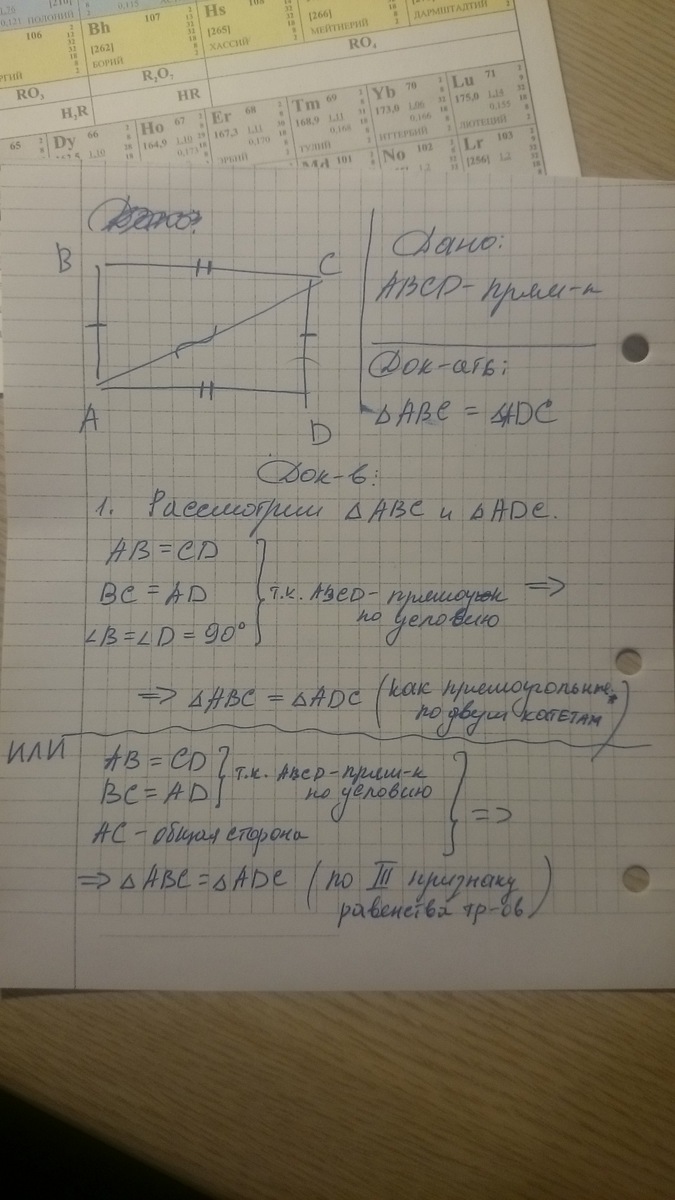 106
Bh 107
[262]
БОРИЙ
Hs
[265]
ХАССИЙ
[266]
МЕЙТНЕРИЙ
ДАРМШТАДТИЙ
0,121 ПОЛОНИЙ
RO₃
R₂O₇
RO₄
H₂R
HR
65
Dy 66
Ho 67
164,9
Er 68
167,3 1,11
0,170
Tm 69
168,9 1,11
0,168
ТУЛИЙ
Yb 70
173,0 1,06
0,166
ИТТЕРБИЙ
Lu 71
175,0 1,14
0,155
ЛЮТЕЦИЙ
Md 101
No 102
Lr 103
[256] 1,2
B
C
A
D
Дано:
ABCD - прям-к
Док-ать:
△ABC = △ADC
Док-в:
1. Рассмотрим △ABC и △ADC.
AB = CD
BC = AD
∠B = ∠D = 90°
т.к. ABCD - прямоуг-к
по условию
=>
=> △ABC = △ADC (как прямоугольные
по двум катетам)
ИЛИ
AB = CD
BC = AD
т.к. ABCD - прям-к
по условию
AC - общая сторона
=>
=> △ABC = △ADC (по III признаку
равенства тр-ов)